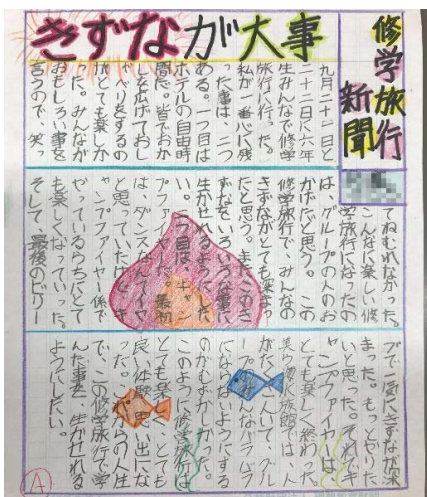 修学旅行
新聞
きずなが大事
九月二十一日と
二十二日に六年
生みんなで修学
旅行に行った。
私が一番心に残
った事は、二つ
ある。一つ目は
ホテルの自由時
間だ。皆でおか
しを広げておし
ゃべりをするの
がとても楽しか
った。みんなが
おもしろい事を
言うので、笑っ
てねむれなかった。
こんなに楽しい修
学旅行になったの
は、グループの人のお
かげだと思う。この
修学旅行で、みんなの
きずながとても深まっ
たと思う。またこのき
ずなをいろいろな事に
生かせれるようにした
い。二つ目は、キャン
プファイヤーだ。最初
は、ダンスなんてイヤだ
と思っていたけど、キ
ャンプファイヤー係で
やっているうちにとて
も楽しくなっていった。
そして、最後のビリー
ブで一気にきずなが深
まった。もっとやりた
いと思った。それでキ
ャンプファイヤーは、
とても楽しく終わった。
美ら海水族館では、人
がたくさんいて、グル
ープのみんながバラバラ
にならないようにする
のがむずかしかった。
このように修学旅行は、
とても楽しく、とても
良い体験、思い出にな
った。これからの人生
で、この修学旅行で学
んだ事を、生かせれる
ようにしたい。
A